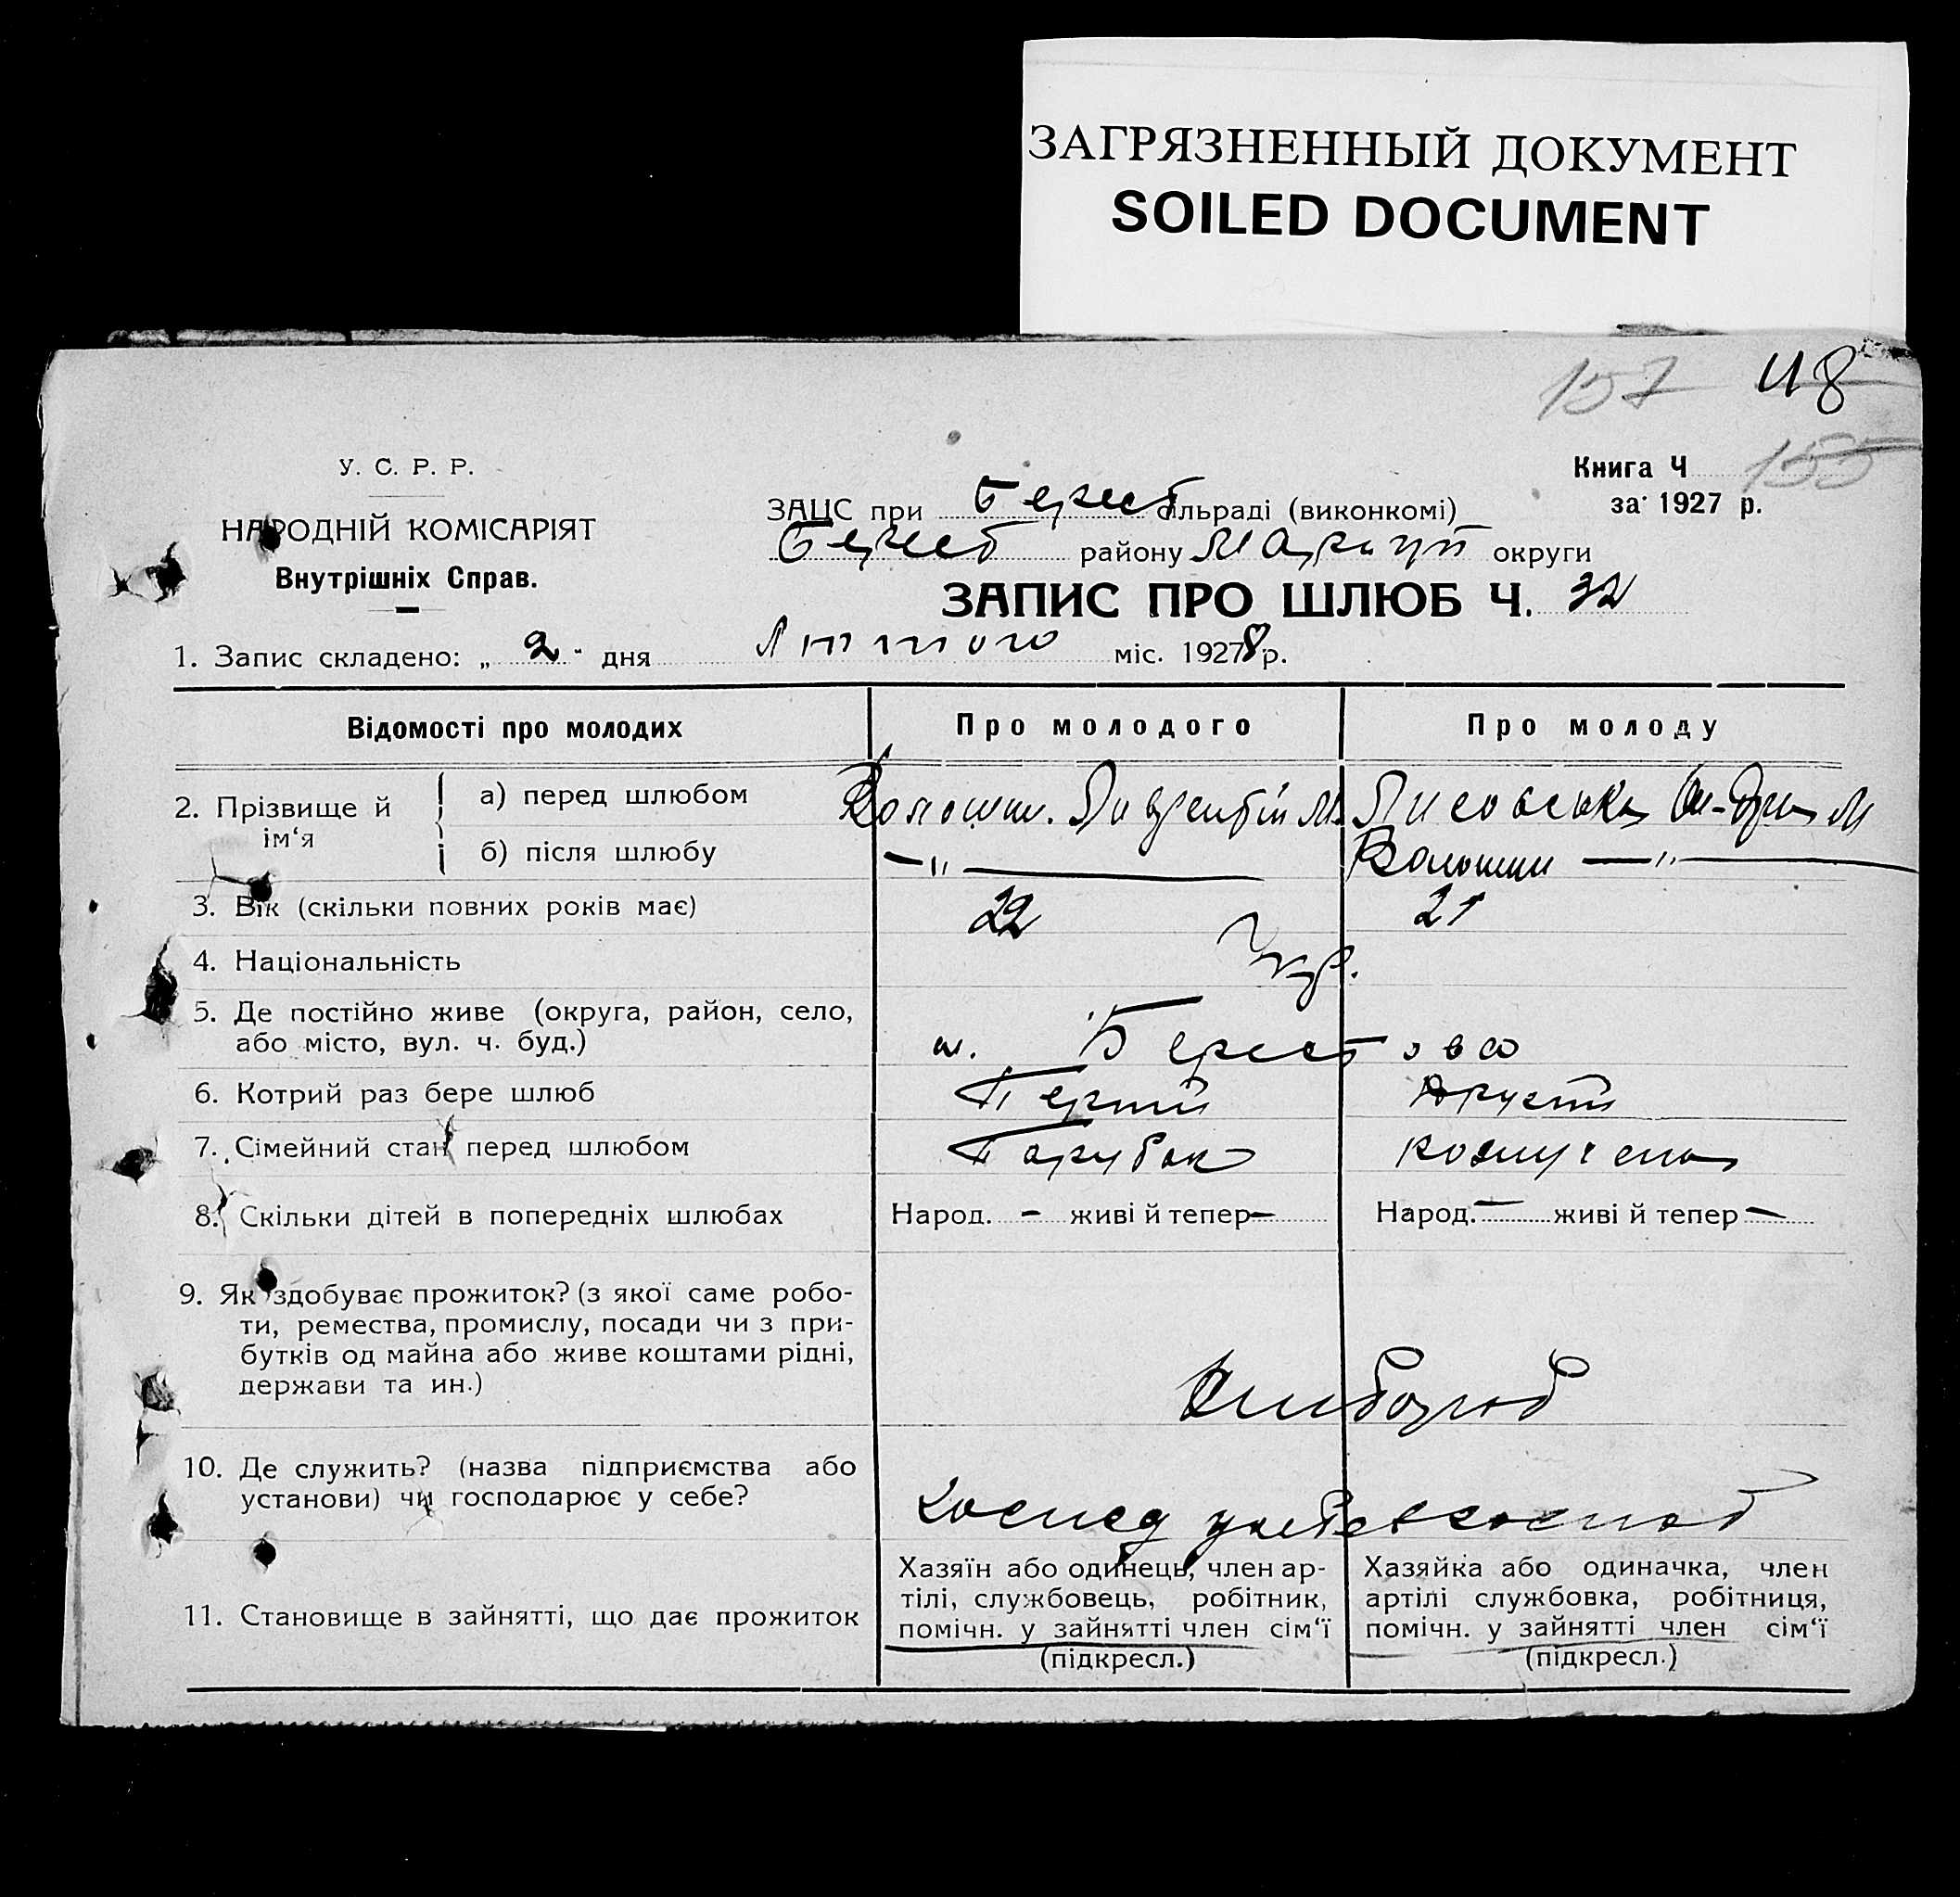 ЗАГРЯЗНЕННЫЙ ДОКУМЕНТ
SOILED DOCUMENT
157 48
155
У. С. Р. Р.
НАРОДНІЙ КОМІСАРІЯТ
Внутрішніх Справ.
Книга Ч
за 1927 р.
ЗАЦС при Берест сільраді (виконкомі)
Берест району Маріуп округи
ЗАПИС ПРО ШЛЮБ Ч. 32
1. Запис складено: „ 2 " дня Лютого міс. 1927 8 р.
Відомості про молодих Про молодого Про молоду
2. Прізвище й ім‘я
а) перед шлюбом Волошин. Лаврентій М. Лисовська М
б) після шлюбу — " — Волошин — " —
3. Вік (скільки повних років має) 22 21
4. Національність Укр.
5. Де постійно живе (округа, район, село,
або місто, вул. ч. буд.) Берестово
6. Котрий раз бере шлюб Перший Другий
7. Сімейний стан перед шлюбом Парубок розлучена
8. Скільки дітей в попередніх шлюбах Народ. — живі й тепер — Народ. — живі й тепер —
9. Як здобуває прожиток? (з якої саме робо-
ти, ремества, промислу, посади чи з при-
бутків од майна або живе коштами рідні,
держави та ин.)
Хлибороб
10. Де служить? (назва підприємства або
установи) чи господарює у себе?
11. Становище в зайнятті, що дає прожиток
Хазяїн або одинець, член ар-
тілі, службовець, робітник,
помічн. у зайнятті член сім‘ї
(підкресл.)
Хазяйка або одиначка, член
артілі службовка, робітниця,
помічн. у зайнятті член сім‘ї
(підкресл.)